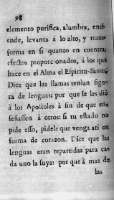 98
elemento purifica, alumbra, enci-
ende, levanta à lo alto, y trans-
forma en si quanto en cuentra;
efectos proporcionados, à los que
hace en el Alma el Espiritu-Santo.
Dice que las llamas tenian figu-
ra de lenguas; por que se les diò
à los Apostoles à fin de que en-
señassen à otros: si tu estado no
pide esso, pidele que venga atì en
forma de corazon. Dice que las
lenguas eran repartidas para ca-
da uno la suya: por que à mas de
las